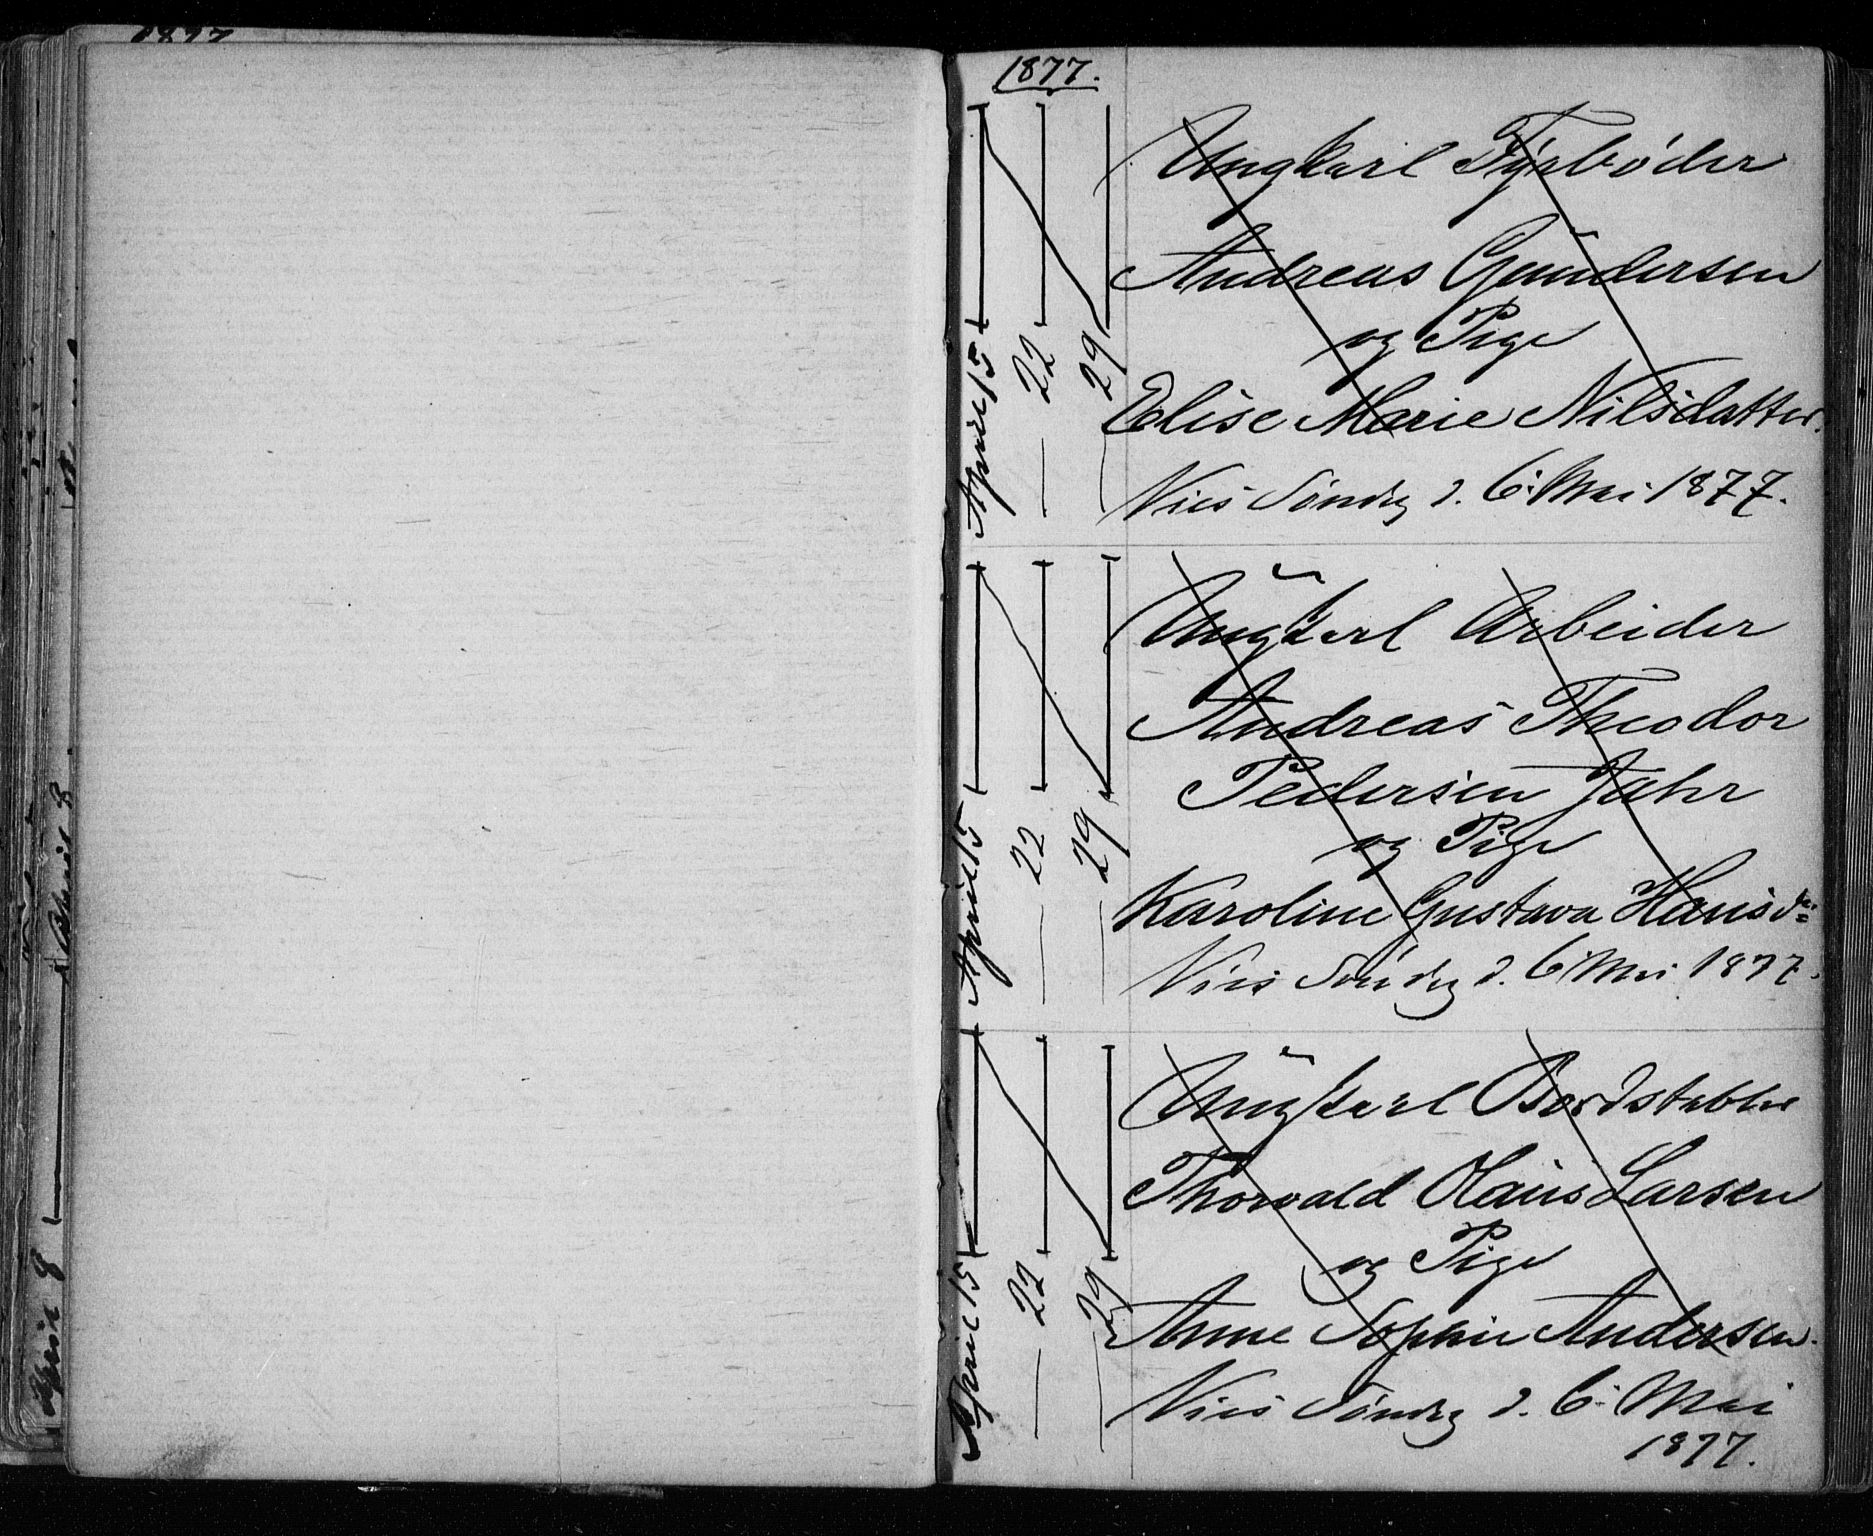 1877.
Ungkarl Fyrbøder
Andreas Gundersen
og Pige
Elise Marie Nilsdatter.
Vies Søndag d. 6. Mai 1877.
April 15
— 22
— 29
Ungkarl Arbeider
Andreas Theodor
Pedersen Jahr
og Pige
Karoline Gustava Hansdtr
Vies Søndag d. 6 Mai 1877.
April 15
— 22
— 29
Ungkarl Bordstabler
Thorvald Hans Larsen
og Pige
Anne Sophie Andersen.
Vies Søndag d. 6. Mai
1877.
April 15
— 22
— 29
1877
April 8
April 8